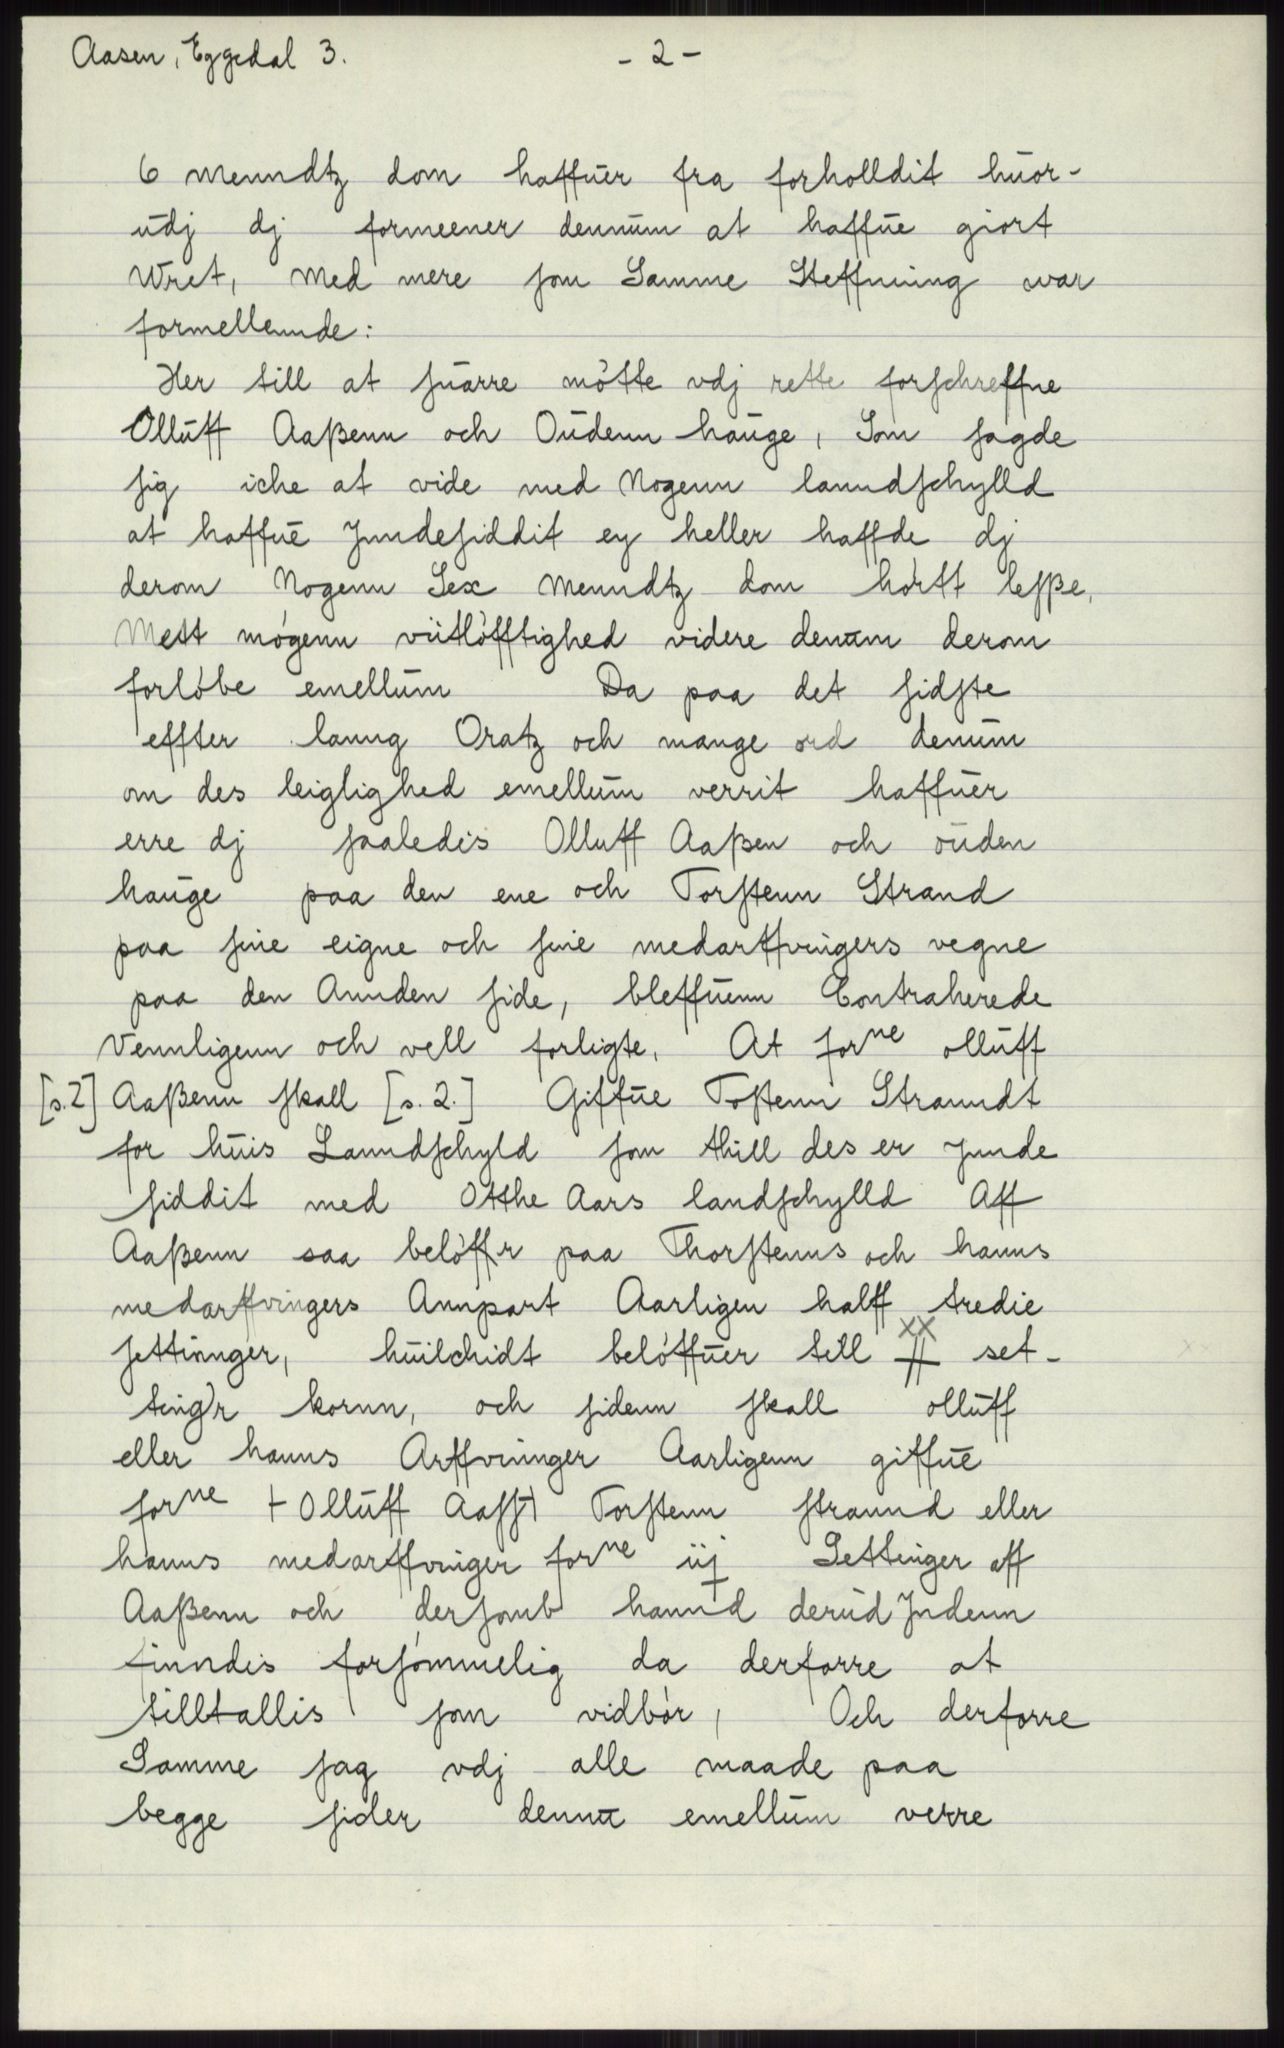 Aasen, Eggedal 3.
- 2 -
6 menndtz dom haffuer fra forholldit huor-
udj dj formeener dennum at haffue giort
Wret, Med mere som Samme Steffning war
formellennde:
Her till at suarre møtte vdj rette forschreffne
Olluff Aaßenn och Oudenn hauge, Som sagde
sig iche at vide med Nogenn lanndschylld
at haffue Jnndesiddit ey heller haffde dj
derom Nogenn Sex Menndtz dom hørtt lesße,
Mett møgenn viitløfftighed videre denum derom
forløbe emellum Da paa det sidste
effter lanng Oratz och mange ord denum
om des leiglighed emellum verrit haffuer
erre dj saaledis Olluff Aaßen och ouden
hauge paa den ene och Torstenn Strand
paa sine eigne och sine medarffvingers vegne
paa den Annden side, bleffuenn Contraherede
Vennligenn och vell forligte, At forne olluff
[s.2] Aaßenn skall [s. 2.] Giffue Tostenn Stranndt
for huis Lanndschyld som thill des er Jnnde
siddit med Otthe Aars landschylld Aff
Aaßenn saa beløffr paa Thorstenns och hanns
medarffvingers Annpart Aarligen halff tredie
settinnger, huilchidt beløffuer till xx set-
tingr kornn, och sidenn skall olluff
eller hanns Arffvinger Aarligenn giffue
forne + Olluff Aass+ Torstenn strannd eller
hanns medarffvinger forne iij Settinger aff
Aaßenn och dersomb hannd derud Jndenn
finndis forsømmelig da derforre at
tilltallis som vidbør, Och derforre
Samme sag vdj alle maade paa
begge sider denna emellum verre